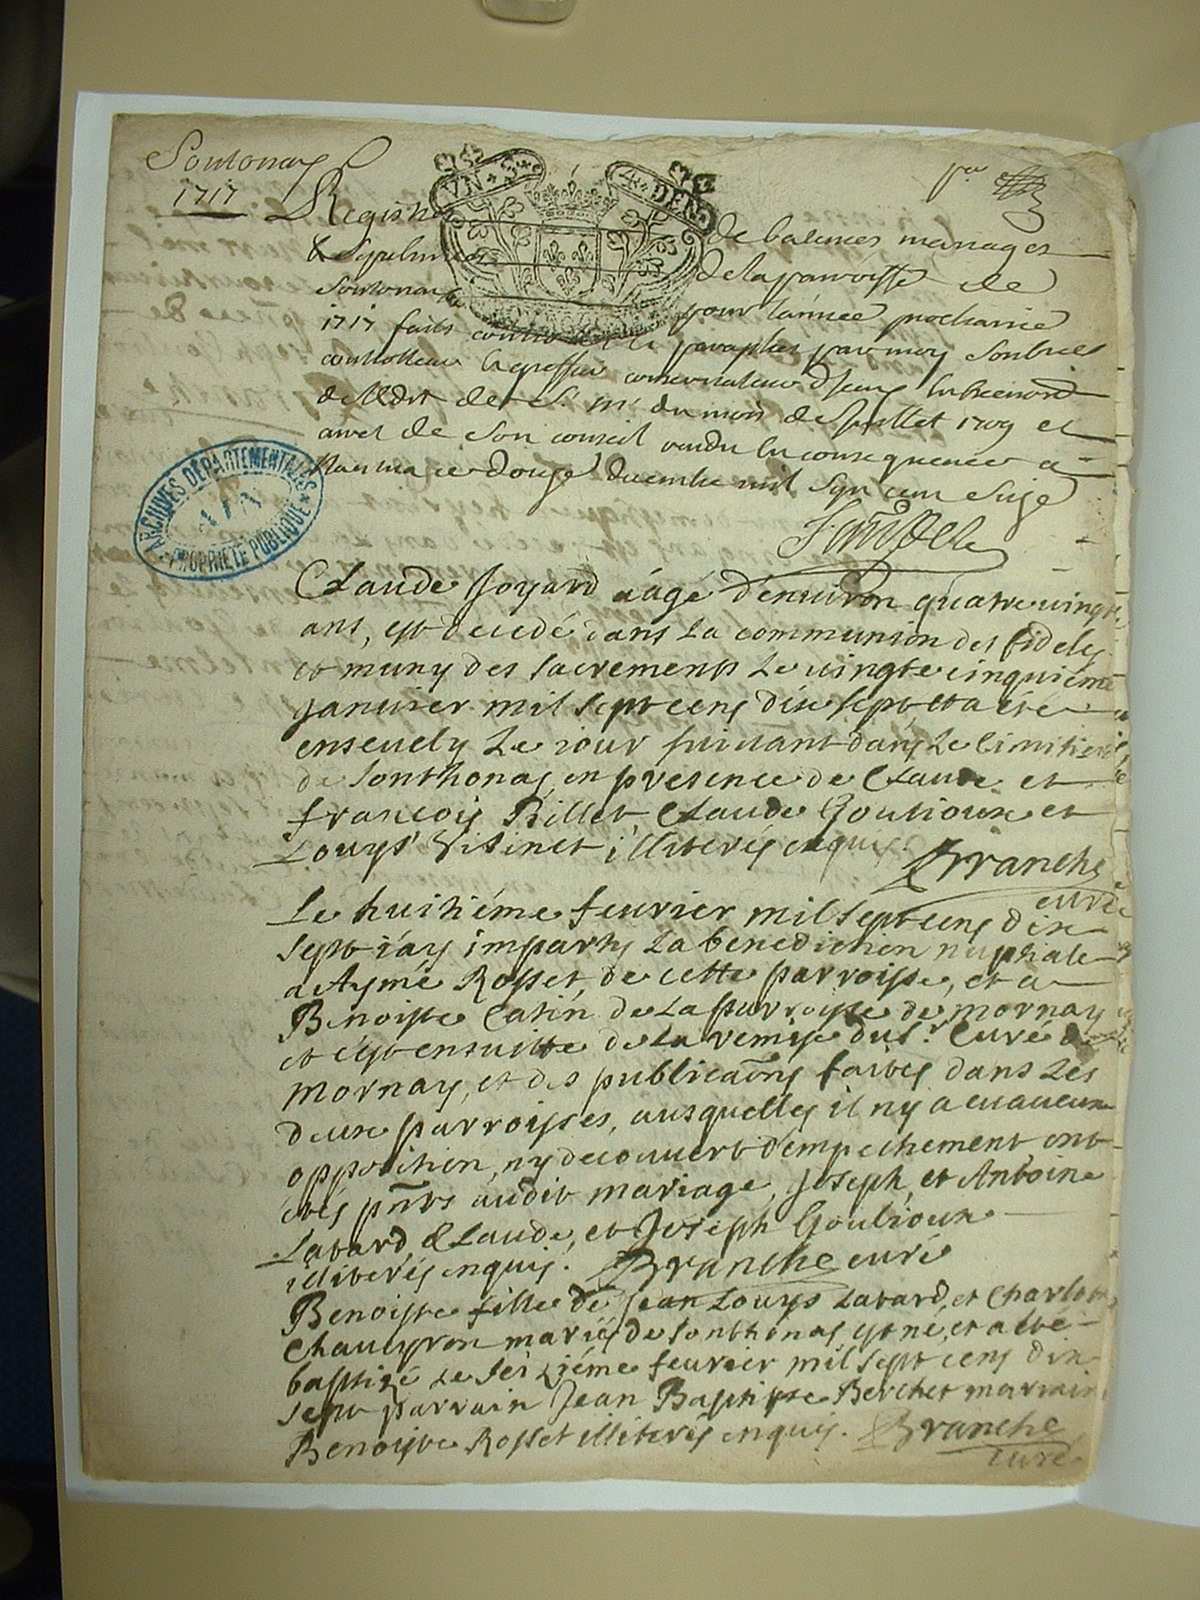 Sontonax
1717
pre
UN S
4 DEN
Registre de batemes mariages
& sepultures de la parroisse de
Sontonax pour l'année prochaine
1717 faits et paraphés par moy
controlleur le greffier conservateur
de l'Edit de S. M. du mois de Juillet 1709 et
arret de son conseil rendu en consequence a
Nantua ce douze decembre mil sept cent seize
ARCHIVES DÉPARTEMENTALES
AIN
PROPRIÉTÉ PUBLIQUE
Claude Joyard aâgé d'environ quatre vingt
ans, est decedé dans la communion des fideles
et muny des sacrements le vingt cinquiéme
janvier mil sept cens dix sept, et a été
ensevely le jour suivant dans le cimitiere
de Sonthonas, en presence de Claude et
françois Billet, Claude Goutioux et
Louys Visinet illiterés enquis.
Branche
curé
Le huitiéme fevrier mil sept cens dix
sept j'ay imparty la benediction nuptiale
a Aymé Rosset, de cette parroisse, et a
Benoiste Catin de la parroisse de Mornay
et c'est ensuitte de la remise du Sr. Curé de
Mornay, et des publicaōns faites dans les
deux parroisses, ausquelles il n'y a eu aucune
opposition, ny decouvert d'empechement, ont
étés pñts audit mariage, Joseph, et Antoine
Latard, Claude, et Joseph Goutioux
illiterés enquis. Branche curé
Benoiste fille de Jean Louys Latard, et Charlotte
Chaveyron mariés de Sonthonas est né, et a été
baptizé le seiziéme fevrier mil sept cens dix
sept parrain Jean Baptiste Berchet marraine
Benoiste Rosset illiterés enquis. Branche
curé